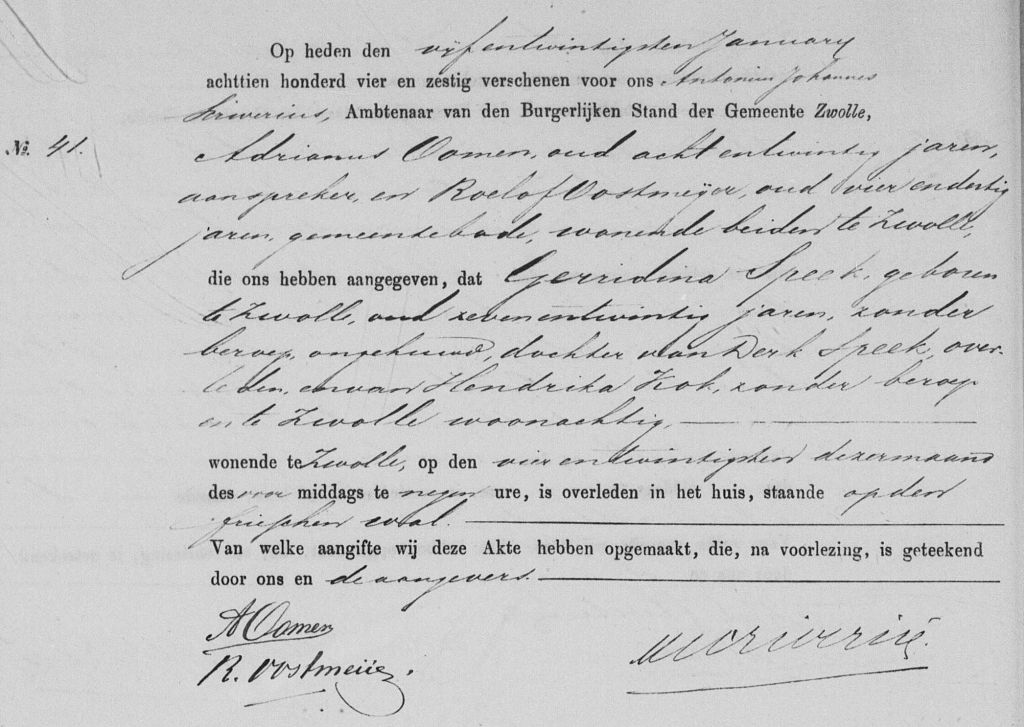 Op heden den vijfentwintigsten January
achttien honderd vier en zestig verschenen voor ons Antonius Johannes
, Ambtenaar van den Burgerlijken Stand der Gemeente Zwolle,
№. 41.
Adrianus Oomen, oud acht entwintig jaren,
aanspreker, en Roelof Oostmeijer, oud vier endertig
jaren, gemeentebode, wonende beiden te Zwolle,
die ons hebben aangegeven, dat Gerridina Speek, geboren
te Zwolle, oud zevenentwintig jaren, zonder
beroep, ongehuwd, dochter van Derk Speek, over-
leden, en van Hendrika Kok, zonder beroep
en te Zwolle woonachtig,
wonende te Zwolle, op den vier entwintigsten dezer maand
des voor middags te negen ure, is overleden in het huis, staande op den
frieschen wal.
Van welke aangifte wij deze Akte hebben opgemaakt, die, na voorlezing, is geteekend
door ons en de aangevers.
A Oomen
R. Oostmeijer.